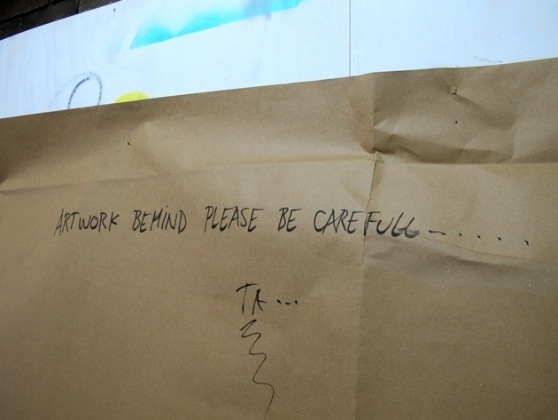 ARTWORK BEHIND PLEASE BE CAREFULL......
TA...